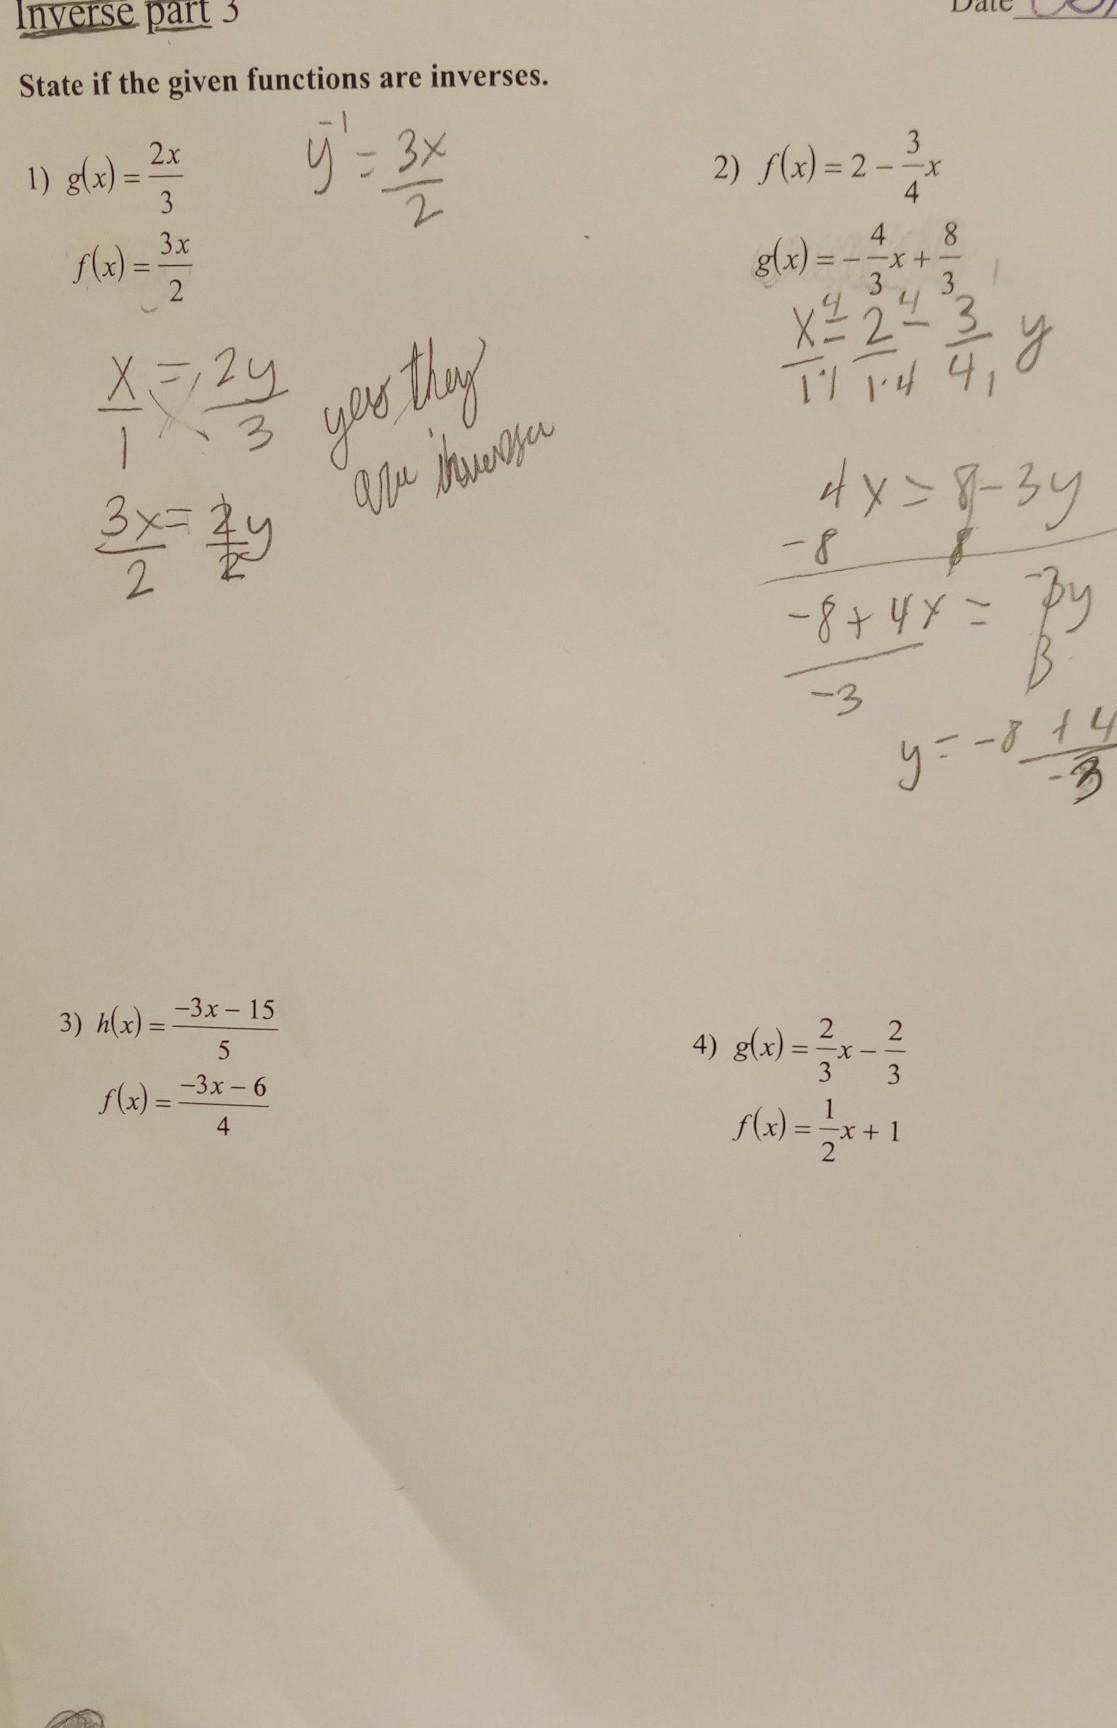 Inverse part 3
Date
State if the given functions are inverses.
1) g(x) = 2x/3
f(x) = 3x/2
y⁻¹ = 3x/2
x/1 = 2y/3
3x/2 = 2y/2
yes they
are
2) f(x) = 2 − 3/4 x
g(x) = −4/3 x + 8/3
x·4/1·4 = 2·4/1·4 − 3/4 y
4x = 8 − 3y
-8 8
-8 + 4x = -3y
-3 3
y = -8 + 4
-3
3) h(x) = −3x − 15/5
f(x) = −3x − 6/4
4) g(x) = 2/3 x − 2/3
f(x) = 1/2 x + 1